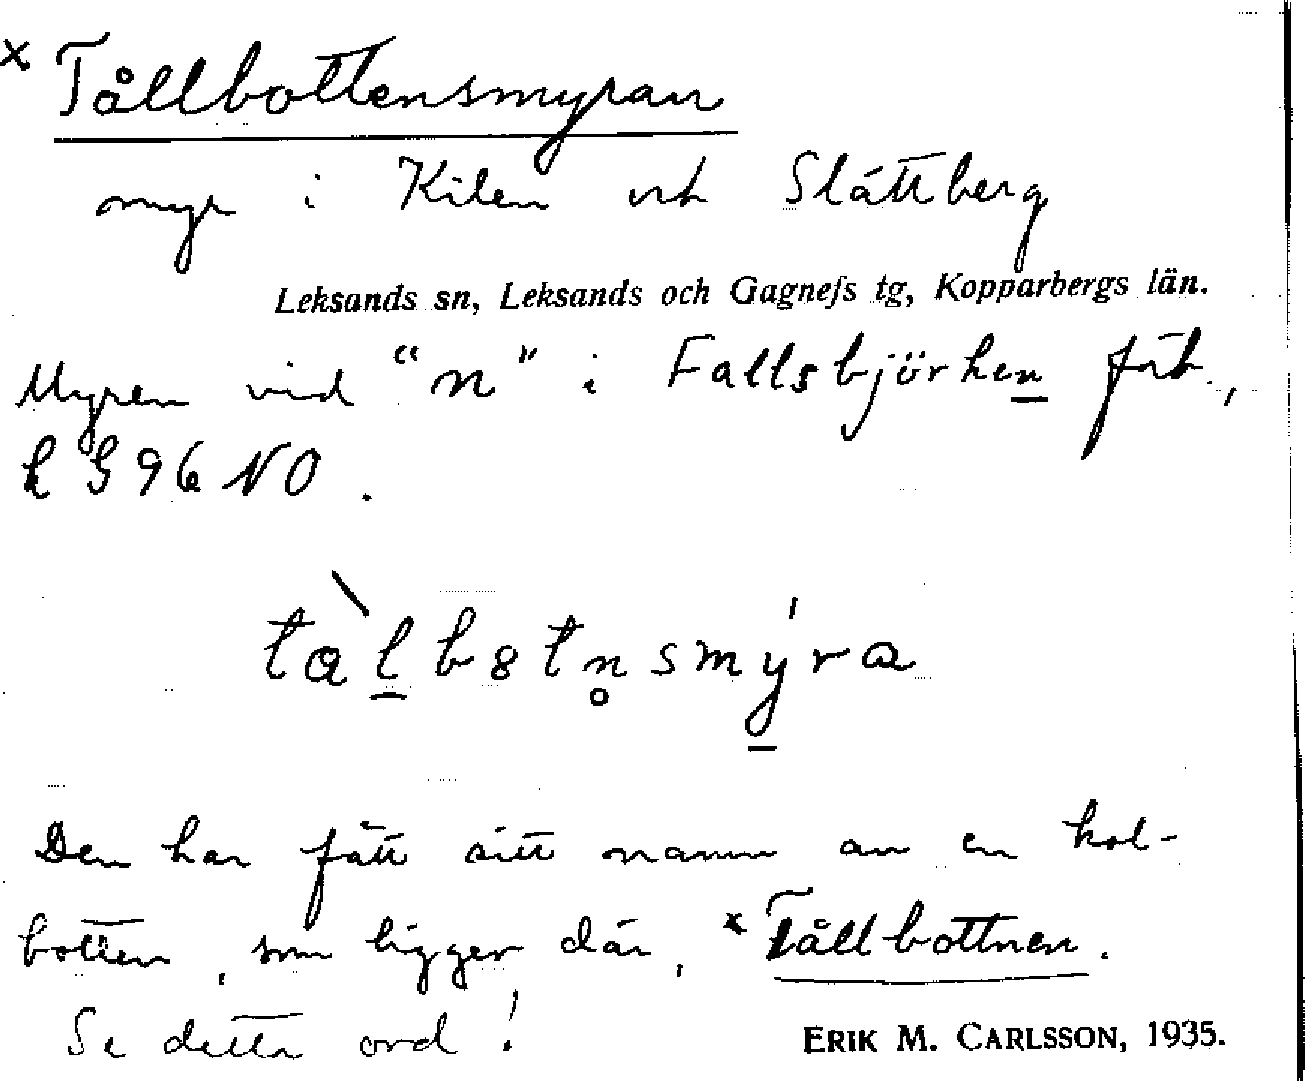 x Tållbottensmyran
myr i Kilen och Slättberg
Leksands sn, Leksands och Gagnefs tg, Kopparbergs län.
Myren vid "n" i Fallsbjörken fäb.,
k G 96 NO.
Den har fått sitt namn av en kol-
botten, som ligger där, x Tållbottnen.
Se detta ord!
ERIK M. CARLSSON, 1935.